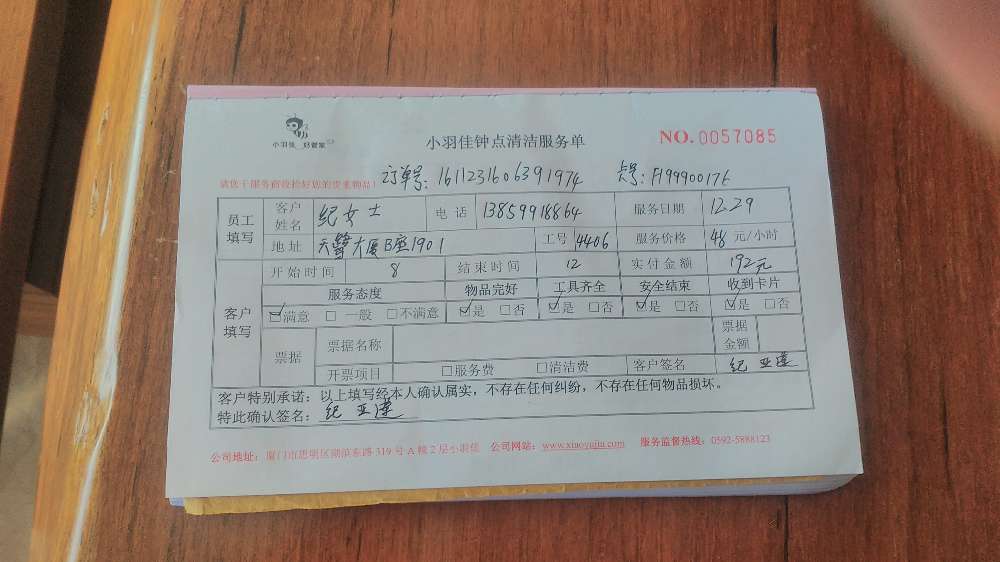 小羽佳 好管家
小羽佳钟点清洁服务单
NO. 0057085
请您于服务前收捡好您的贵重物品!
订单号: 1611231606391974 卡号: F1999001 7E
员工填写 客户姓名 纪女士 电话 13859918864 服务日期 12.29
地址 天鹭大厦B座1901 工号 4406 服务价格 48 元/小时
客户填写 开始时间 8 结束时间 12 实付金额 192元
服务态度 物品完好 工具齐全 安全结束 收到卡片
☑满意 □一般 □不满意 ☑是 □否 ☑是 □否 ☑是 □否 ☑是 □否
票据 票据名称 票据金额
开票项目 □服务费 □清洁费 客户签名 纪亚
客户特别承诺: 以上填写经本人确认属实,不存在任何纠纷,不存在任何物品损坏。
特此确认签名: 纪亚
公司地址: 厦门市思明区湖滨东路319号A幢2层小羽佳 公司网站: www.xiaoyujia.com 服务监督热线: 0592-5888123